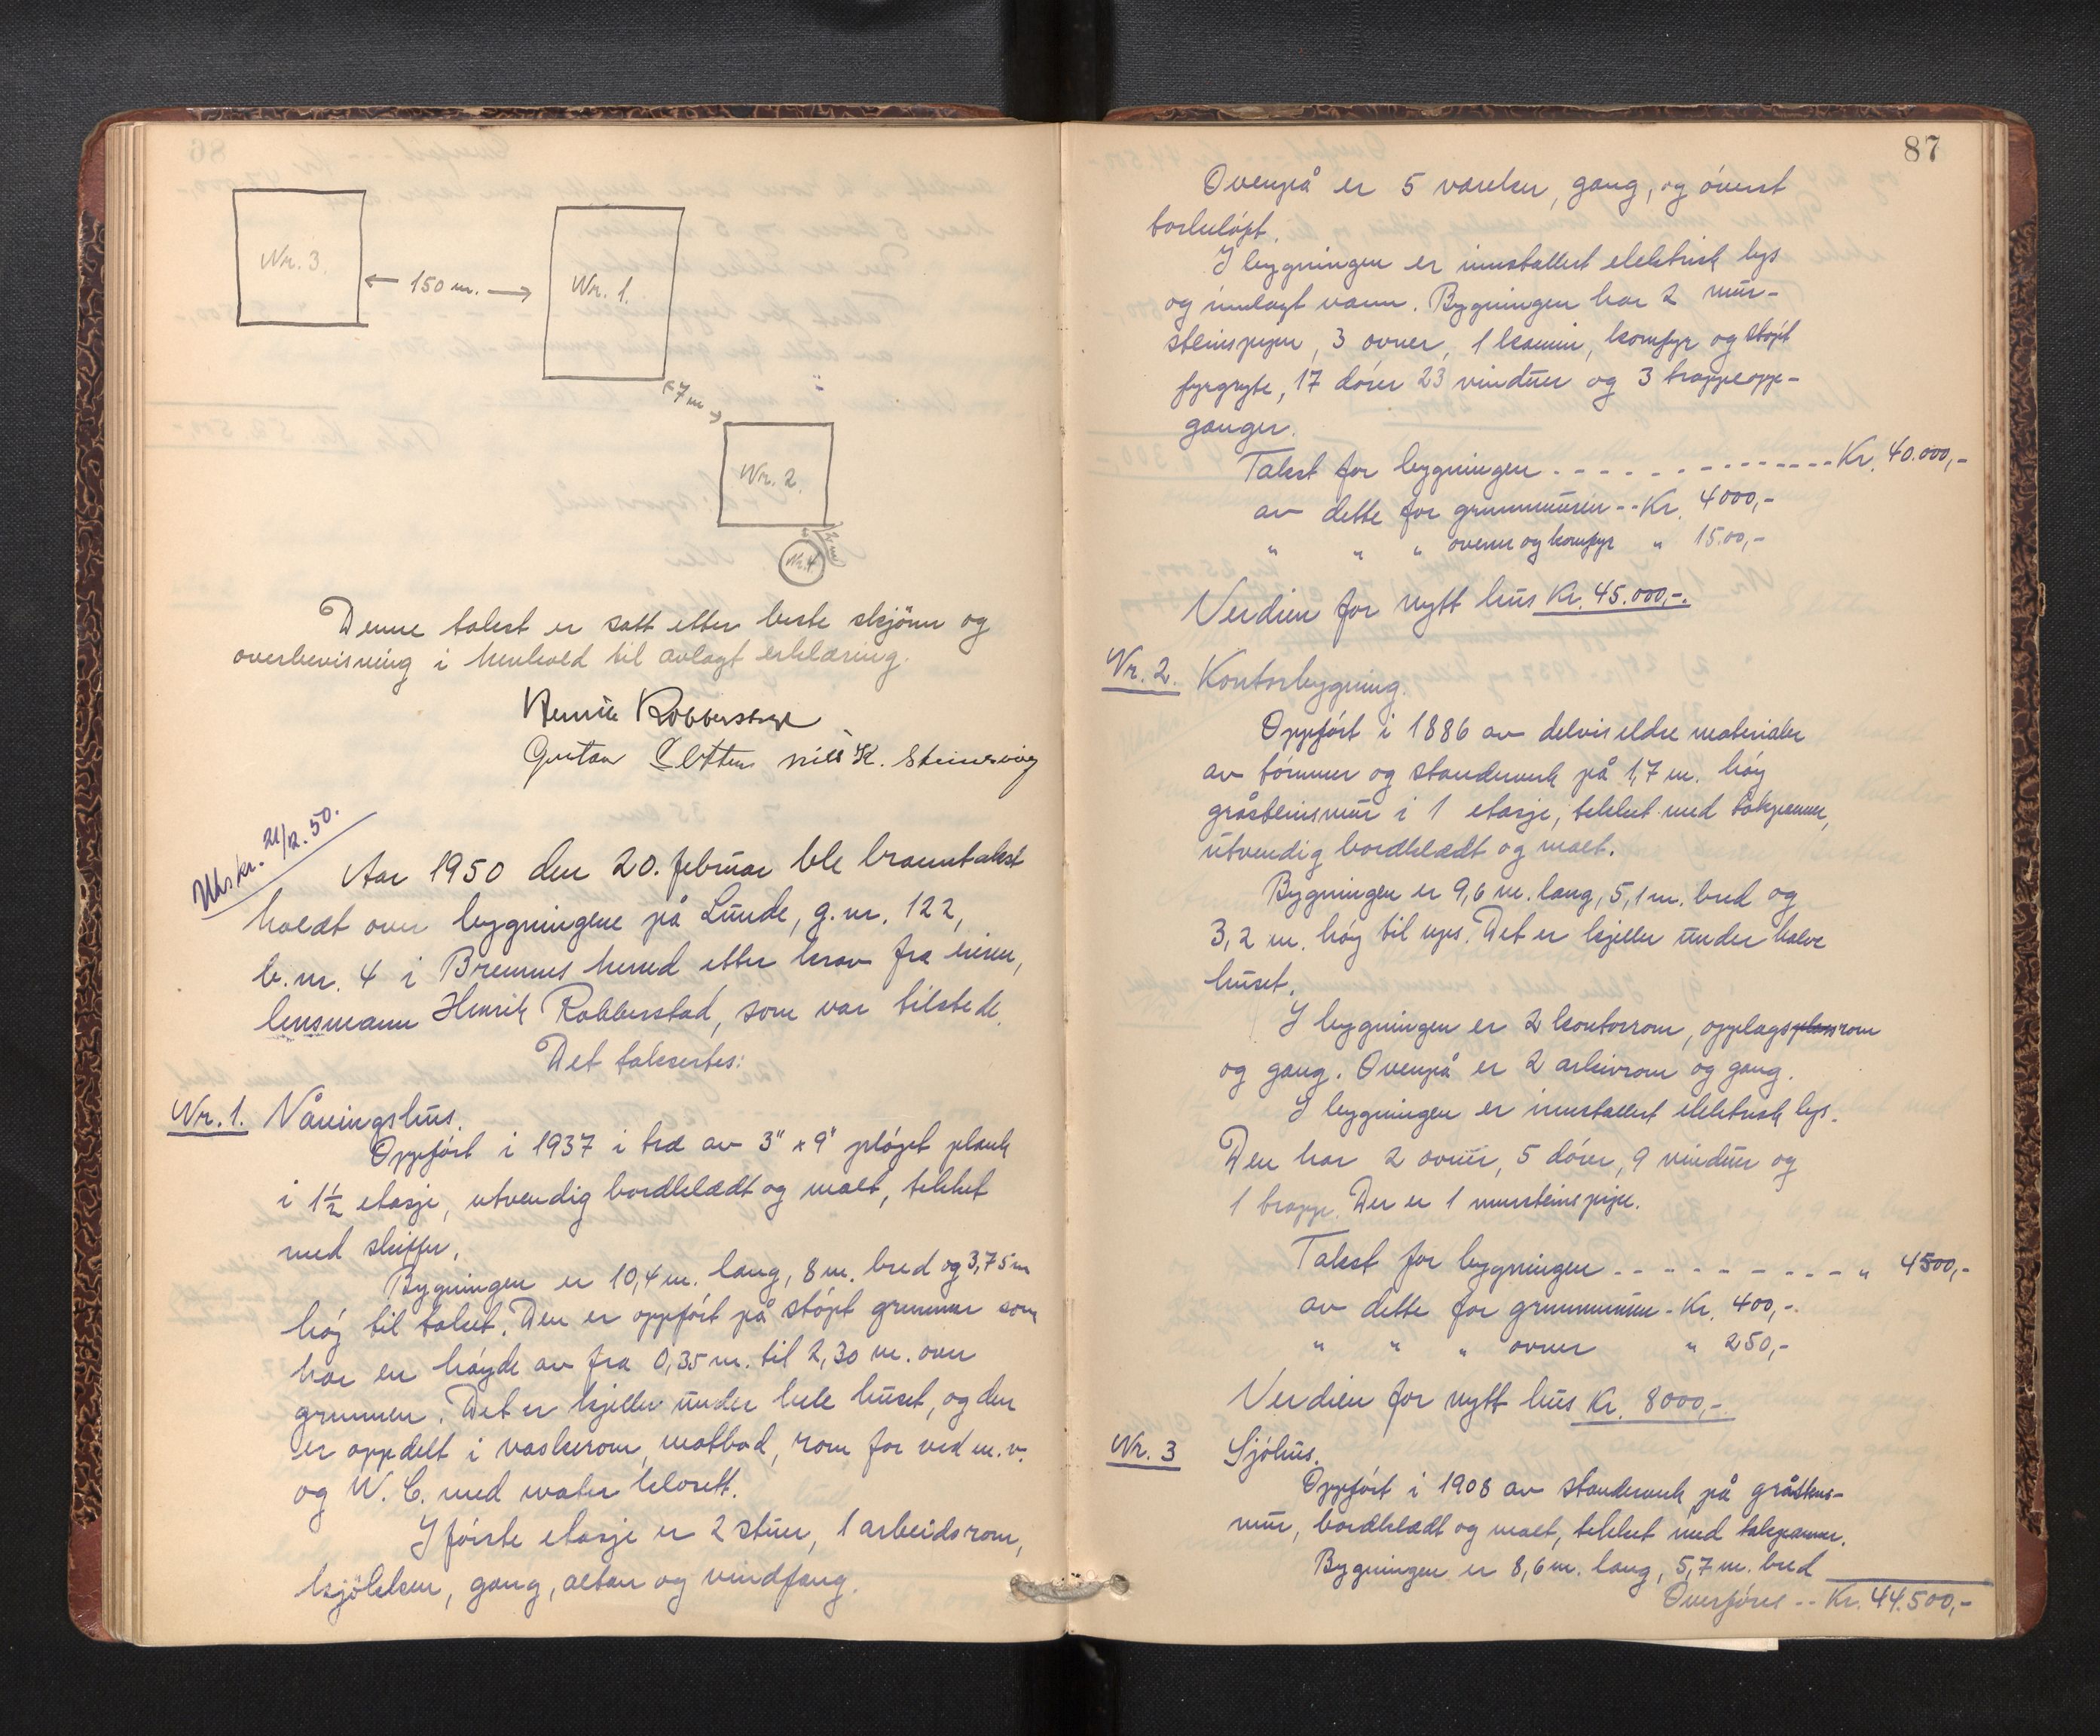 Nr. 3.
← 150 m. →
Nr. 1.
7 m
Nr. 2.
Nr. 4
Denne takst er satt etter beste skjönn og
overbevisning i henhold til avlagt erklæring.
Henrik Robberstad
Gustav Sletten Nils K. Steinsvåg
Utskr. 21/2. 50.
Aar 1950 den 20. februar ble branntakst
holdt over bygningene på Lunde, g.nr. 122,
b.nr. 4 i Bremnes herred etter krav fra eieren,
lensmann Henrik Robberstad, som var tilstede.
Det taksertes:
Nr. 1. Våningshus.
Oppfört i 1937 i tre av 3" x 9" plöyet plank
i 1½ etasje, utvendig bordklædt og malt, tekket
med skiffer.
Bygningen er 10,4 m. lang, 8 m. bred og 3,75 m
höy til taket. Den er oppfört på stöpt grunnmur som
har en höyde av fra 0,35 m. til 2,30 m. over
grunnen. Det er kjeller under hele huset, og den
er oppdelt i vaskerom, matbod, rom for ved m.v.
og W.C. med water klosett.
I förste etasje er 2 stuer, 1 arbeidsrom,
kjökken, gang, altan og vindfang.
87
Ovenpå er 5 værelser, gang, og överst
törkeloft.
I bygningen er innstallert elektrisk lys
og innlagt vann. Bygningen har 2 mur-
steinspiper, 3 ovner, 1 kamin, komfyr og stöpt
fyrgryte, 17 dörer 23 vinduer og 3 trappeopp-
ganger.
Takst for bygningen - - - - - - - - - - - - - - Kr. 40.000,-
av dette for grunnmuren - - Kr. 4000,-
" " " ovner og komfyr " 1500,-
Verdien for nytt hus Kr. 45.000,-.
Nr. 2. Kontorbygning.
Oppfört i 1886 av delvis eldre materialer
av tömmer og standerverk på 1,7 m. höy
gråsteinsmur i 1 etasje, tekket med takpanner,
utvendig bordklædt og malt.
Bygningen er 9,6 m. lang, 5,1 m. bred og
3,2 m. höy til ups. Det er kjeller under halve
huset.
I bygningen er 2 kontorrom, opplagsplassrom
og gang. Ovenpå er 2 arkivrom og gang.
I bygningen er innstallert elektrisk lys.
Den har 2 ovner, 5 dörer, 9 vinduer og
1 trapp. Der er 1 mursteinspipe.
Takst for bygningen - - - - - - - - - - " 4500,-
av dette for grunnmuren - Kr. 400,-.
" " " ovner " 250,-
Verdien for nytt hus Kr. 8000,-
Nr. 3 Sjöhus.
Oppfört i 1908 av standerverk på gråstens-
mur, bordklædt og malt, tekket med takpanner.
Bygningen er 8,6 m. lang, 5,7 m. bred
Overföres - - Kr. 44.500,-